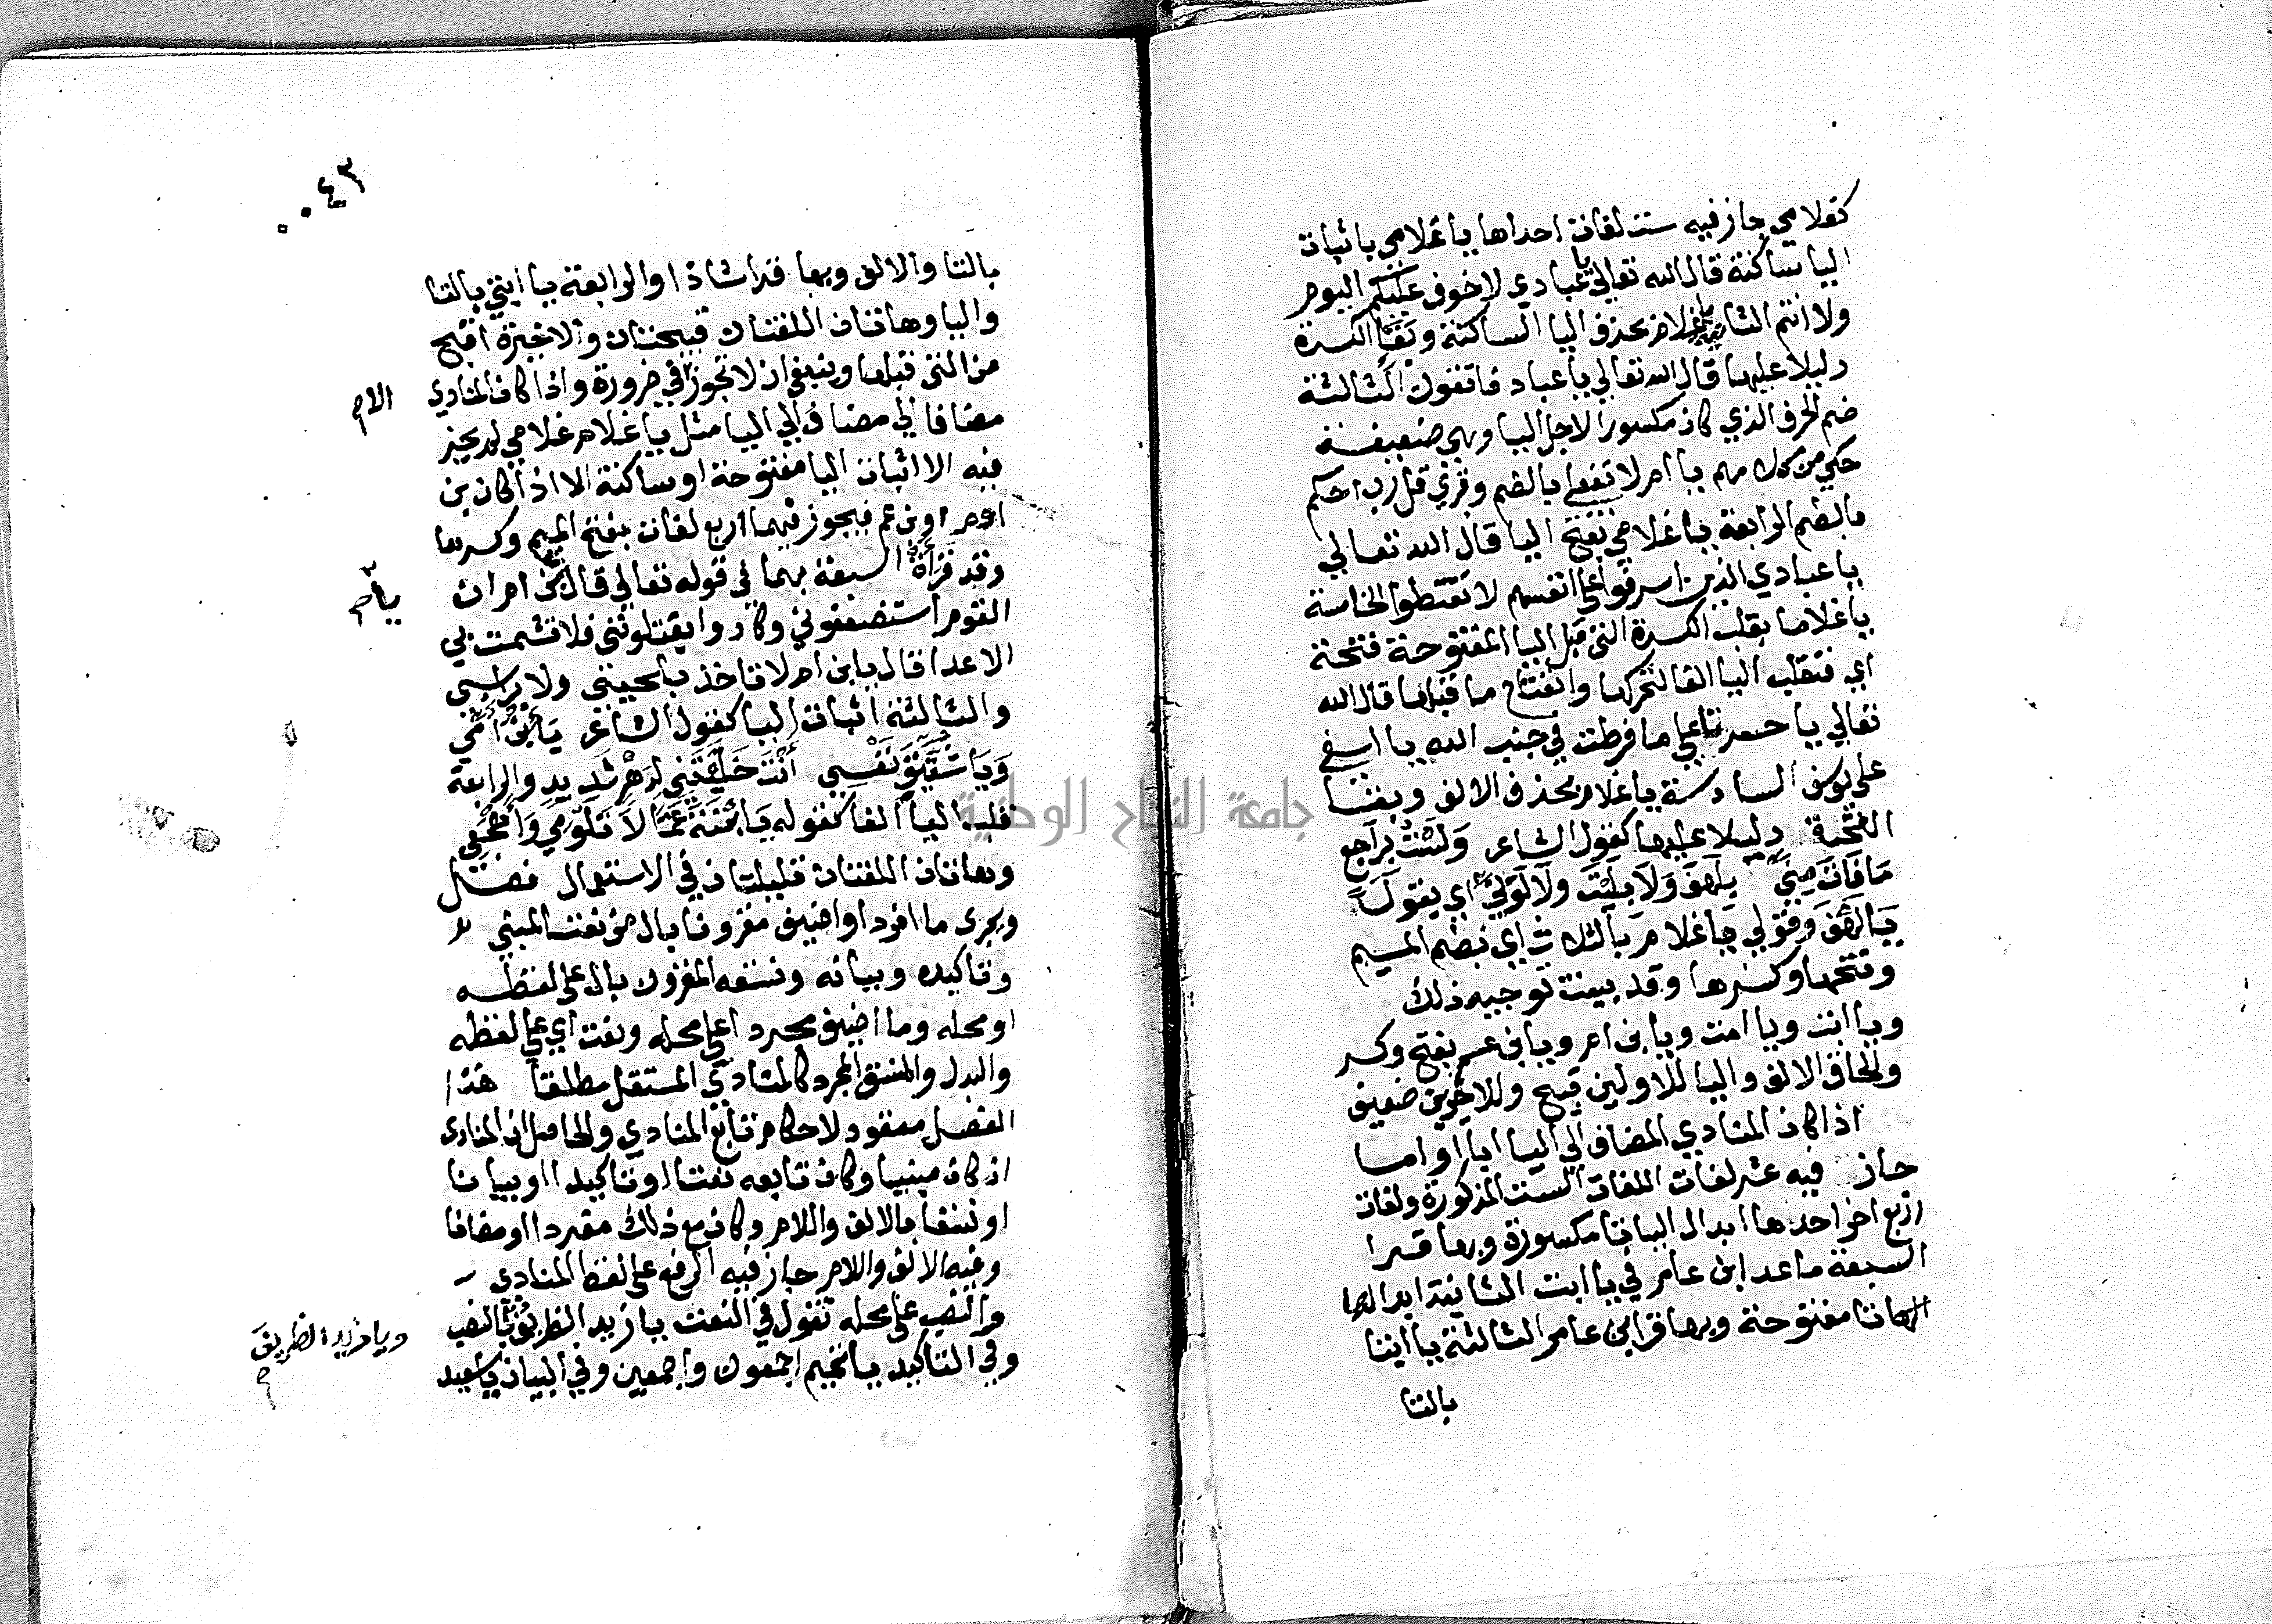 كغلامي جاز فيه ست لغات احداها يا غلامي باثبات
اليا ساكنة قال الله تعالي يا عبادي لا خوف عليكم اليوم
ولا انتم الثانية يا غلام بحذف اليا الساكنة وبقا الكسرة
دليلا عليها قال الله تعالي يا عباد فاتقون الثالثة
ضم الحرف الذي كان مكسورا لاجل اليا وهي ضعيفة
حكي من كلامهم يا ام لا تفعلي بالضم وقري قل رب احكم
بالضم الرابعة يا غلامي بفتح اليا قال الله تعالي
يا عبادي الذين اسرفوا علي انفسهم لا تقنطوا الخامسة
يا غلاما بقلب الكسرة التي قبل اليا المفتوحة فتحة
اي فتقلب اليا الفا لتحركها وانفتاح ما قبلها قال الله
تعالي يا حسرتا علي ما فرطت في جنب الله يا اسفي
علي يوسف السادسة يا غلام بحذف الالف وبقا
الفتحة دليلا عليها كقول الشاعر وَلَسْتُ بِرَاجِعٍ
مَا فَاتَ مِنِّي بِلَهْفَ وَلَا بِلَيْتَ وَلَا لَوَ انِّي اي بقول
يَا لَهْفَ وقولي يا غلام بالثلاث اي بضم الميم
وفتحها وكسرها وقد بينت توجيه ذلك
ويا ابت ويا امت ويا بن ام ويا بن عم بفتح وكسر
ولحاق الالف واليا للاولين قبيح وللاخرين ضعيف
اذا كان المنادي المضاف الي اليا ابا او اما
جاز فيه عشر لغات اللغات الست المذكورة ولغات
اربع اخر احدها ابدال اليا تا مكسورة وبها قرا
السبعة ما عدا ابن عامر في يا ابت الثانية ابدالها
تا مفتوحة وبها قرا ابن عامر الثالثة يا ابتا
بالتا
٤٣
بالتا والالف وبها قرا شاذا والرابعة يا ابتي بالتا
واليا وهاتان اللغتان قبيحتان والاخيرة اقبح
من التي قبلها وينبغي ان لا تجوز في ضرورة واذا كان المنادي
الا
مضافا الي مضاف الي اليا مثل يا غلام غلامي لم يجز
فيه الا اثبات اليا مفتوحة او ساكنة الا اذا كان بن
ام او بن عم فيجوز فيهما اربع لغات بفتح الميم وكسرها
وقد قرأت السبعة بهما في قوله تعالي قال ابن ام ان
القوم استضعفوني وكادوا يقتلونني فلا تشمت بي
الاعدا قال يا بن ام لا تاخذ بلحيتي ولا براسي
والثالثة اثبات اليا كقول الشاعر يا ابْنَ امِّي
وَيَا شُقَيِّقَ نَفْسِي أَنْتَ خَلَّفْتَنِي لِدَهْرٍ شَدِيدِ والرابعة
قلب اليا الفا كقوله يَا ابْنَةَ عَمَّا لَا تَلُومِي وَاهْجَعِي
وهاتان اللغتان قليلتان في الاستعمال فصل
ويجري ما افرد او اضيف مقرونا بال من نعت المبني
وتاكيده وبيانه ونسقه المقرون بال علي لفظه
او محله وما اضيف مجردا علي محله ونعت اي علي لفظه
والبدل والنسق المجرد كالمنادي المستقل مطلقا هذا
الفصل معقود لاحكام تابع المنادي والحاصل ان المنادي
ان كان مبنيا وكان تابعه نعتا او تاكيدا او بيانا
او نسقا بالالف واللام وكان مع ذلك مفردا او مضافا
وفيه الالف واللام جاز فيه الرفع علي لفظ المنادي
والنصب علي محله تقول في النعت يا زيد الظريف بالنصب
ويا زيد الظريف
وفي التاكيد يا تميم اجمعون واجمعين وفي البيان يا سعيد
جامعة النجاح الوطنية